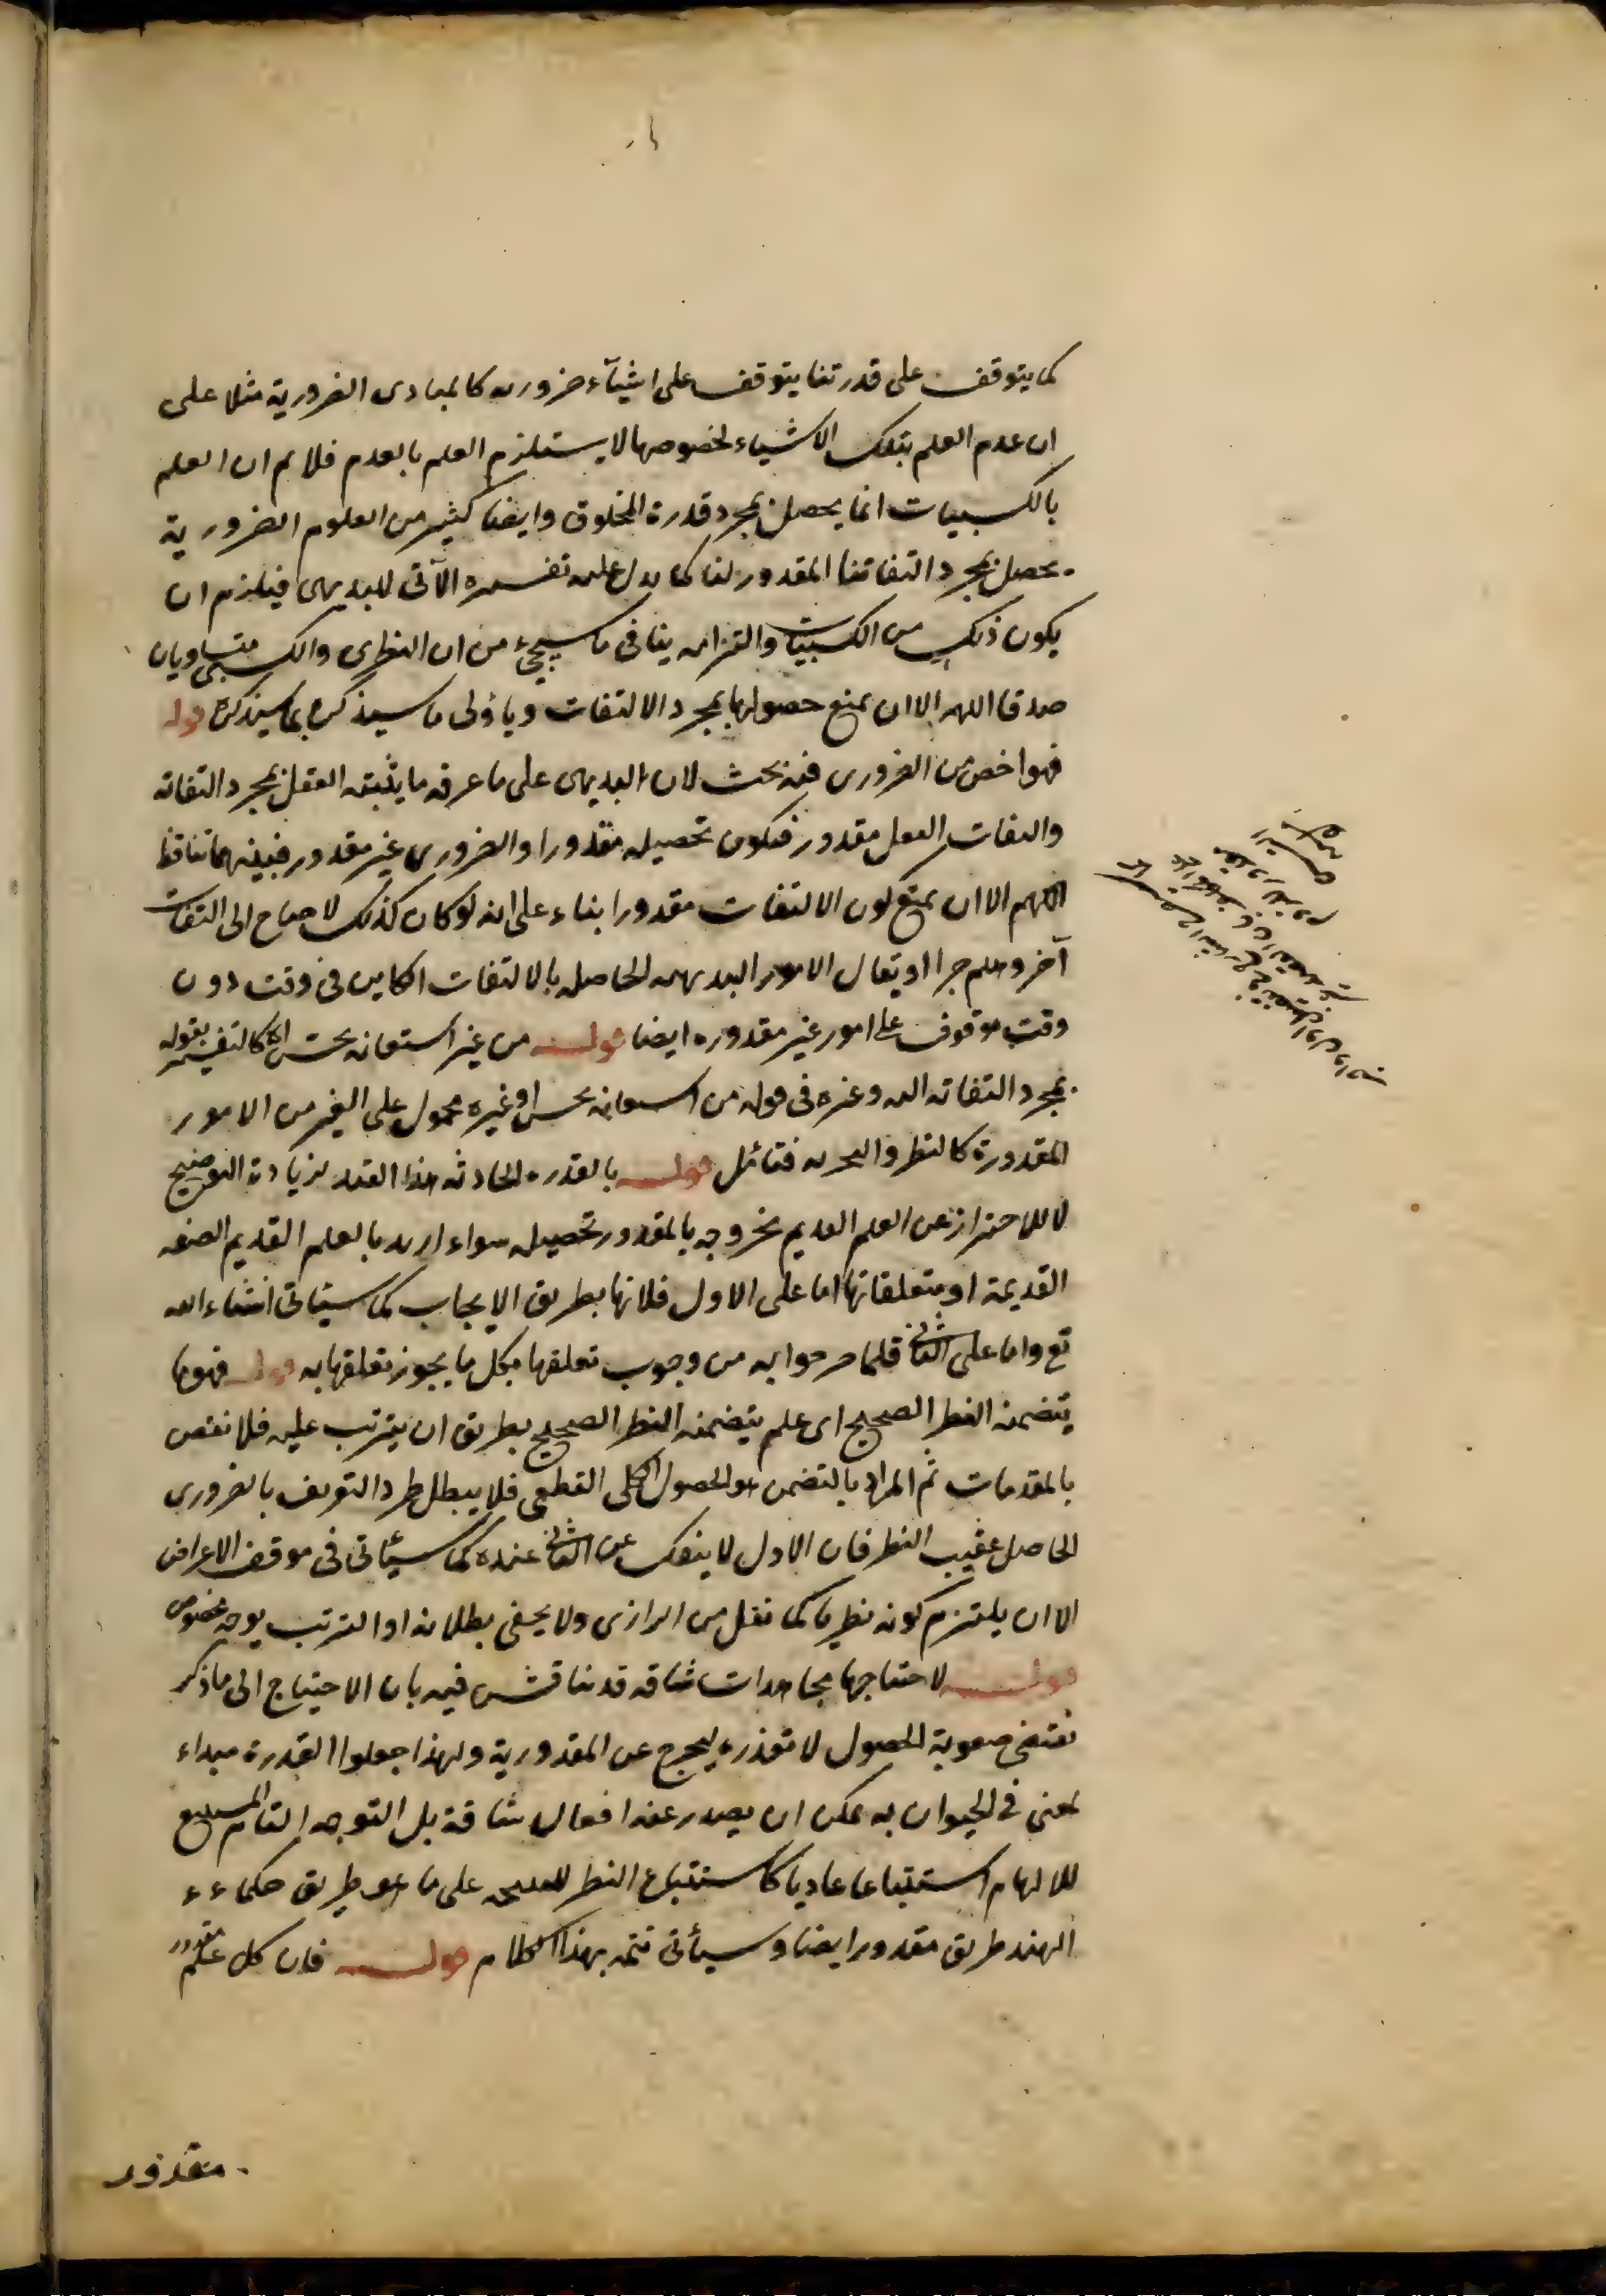 كما يتوقف على قدرتنا يتوقف على اشيآء ضرورية كالمبادى الضرورية مثلا على
ان عدم العلم بتلك الاشياء لخصوصها لا يستلزم العلم بالعدم فلا نم ان العلم
بالكسبيات انما يحصل بمجرد قدرة المخلوق وايضا كثير من العلوم الضرورية
يحصل بمجرد التفاتنا المقدور لنا كما يدل عليه تفسيره الآتى للبديهى فيلزم ان
يكون ذلك من الكسبيات والتزامه ينافى ما سيجيء من ان النظرى والكسبى متساويان
صدقا اللهم الا ان يمنع حصولها بمجرد الالتفات ويأول ما سيذكره بما سيذكره قوله
فهو اخص من الضرورى فيه بحث لان البديهى على ما عرفه ما يثبته العقل بمجرد التفاته
والتفات العقل مقدور فيكون تحصيله مقدورا والضرورى غير مقدور فبينهما تناقض
اللهم الا ان يمنع كون الالتفات مقدورا بناء على انه لو كان كذلك لاحتاج الى التفات
آخر وهلم جرا او يقال الامور البديهية الحاصلة بالالتفات الكاين فى وقت دون
وقت موقوف على امور غير مقدوره ايضا قوله من غير استعانه بحس الخ كالتفسير لقوله
بمجرد التفاته اليه وغيره فى قوله من استعانه بحس او غيره محمول على الغير من الامور
المقدورة كالنظر والتجربه فتأمل قوله بالقدره الحادثه هذا القيد لزيادة التوضيح
لا للاحتراز عن العلم القديم لخروجه بالمقدور تحصيله سواء اريد بالعلم القديم الصفه
القديمة او متعلقاتها اما على الاول فلانها بطريق الايجاب كما سيأتى انشاء الله
تع واما على الثانى فلما صرحوا به من وجوب تعلقها بكل ما يجوز تعلقها به قوله فهو ما
يتضمنه النظر الصحيح اى علم يتضمنه النظر الصحيح بطريق ان يترتب عليه فلا نقض
بالمقدمات ثم المراد بالتضمن هو الحصول الكلى القطعى فلا يبطل طرد التعريف بالضرورى
الحاصل عقيب النظر فان الاول لا ينفك عن الثانى عنده كما سيأتى فى موقف الاعراض
الا ان يلتزم كونه نظريا كما نقل من الرازى ولا يخفى بطلانه او الترتب بوجه مخصوص
قوله لاحتياجها مجاهدات شاقه قد يناقش فيه بان الاحتياج الى ما ذكر
يقتضى صعوبة الحصول لا تعذره ليخرج عن المقدورية ولهذا جعلوا القدرة مبداء
لمعنى فى الحيوان به يمكن ان يصدر عنه افعال شاقة بل التوجه التام المستتبع
للالهام استتباعا عاديا كاستتباع النظر للنتيجه على ما هو طريق حكماء
الهند طريق مقدور ايضا وسيأتى تتمه بهذا الكلام قوله فان كل علم مقدور
مقدور